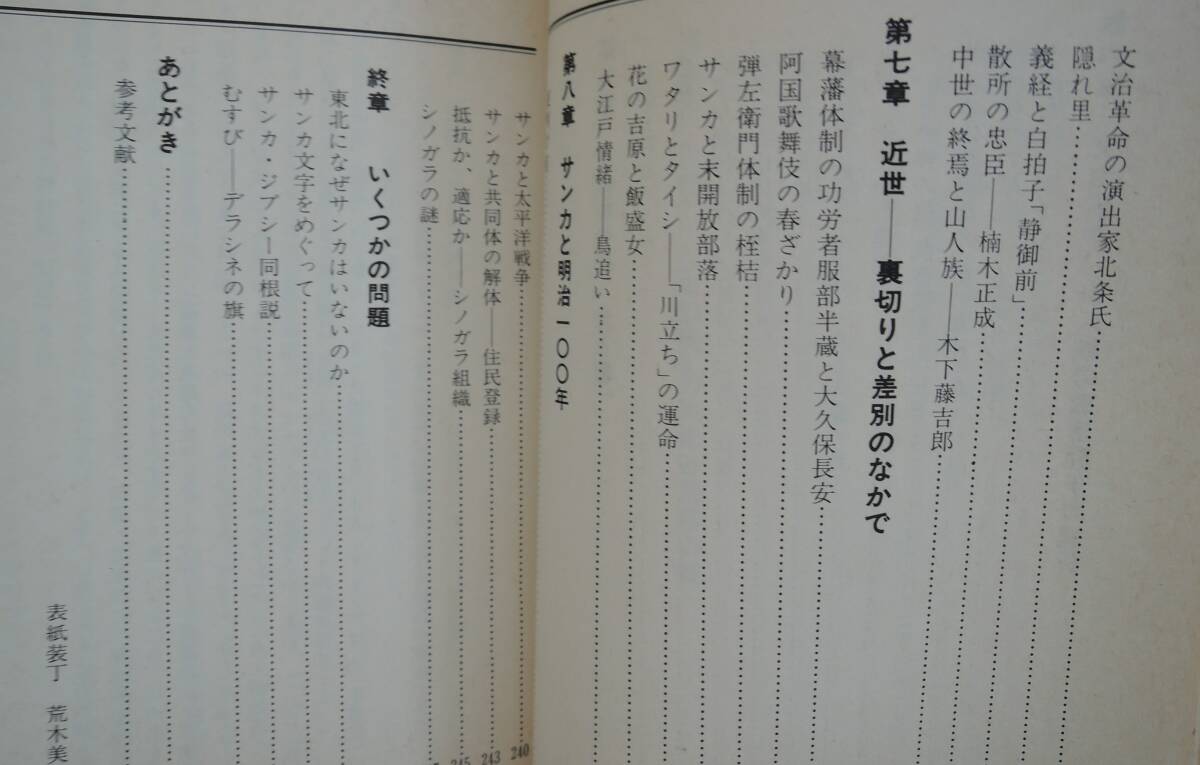 文治革命の演出家北条氏
隠れ里
義経と白拍子「静御前」
散所の忠臣――楠木正成
中世の終焉と山人族――木下藤吉郎
第七章　近世――裏切りと差別のなかで
幕藩体制の功労者服部半蔵と大久保長安
阿国歌舞伎の春ざかり
弾左衛門体制の桎梏
サンカと未開放部落
ワタリとタイシ――「川立ち」の運命
花の吉原と飯盛女
大江戸情緒――鳥追い
第八章　サンカと明治一〇〇年
サンカと太平洋戦争 240
サンカと共同体の解体――住民登録 243
抵抗か、適応か――シノガラ組織 245
シノガラの謎
終章　いくつかの問題
東北になぜサンカはいないのか
サンカ文字をめぐって
サンカ・ジプシー同根説
むすび――デラシネの旗
あとがき
参考文献
表紙装丁　荒木美